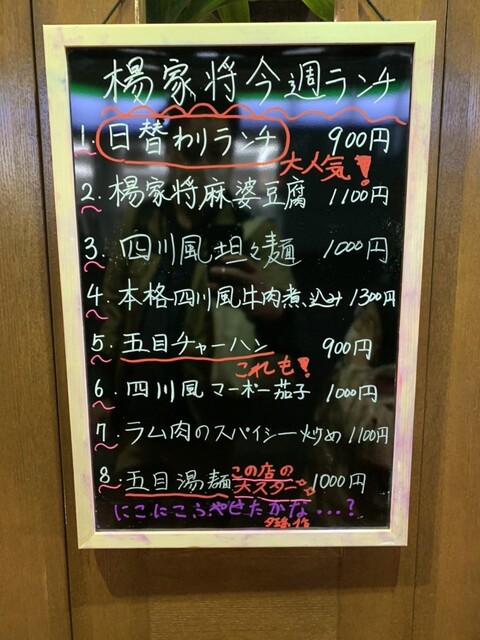 楊家将今週ランチ
1. 日替わりランチ 900円
大人気!
2. 楊家将麻婆豆腐 1100円
3. 四川風坦々麺 1000円
4. 本格四川風牛肉煮込み 1300円
5. 五目チャーハン 900円
これも!
6. 四川風マーボー茄子 1000円
7. ラム肉のスパイシー炒め 1100円
8. 五目湯麺 この店の大スター 1000円